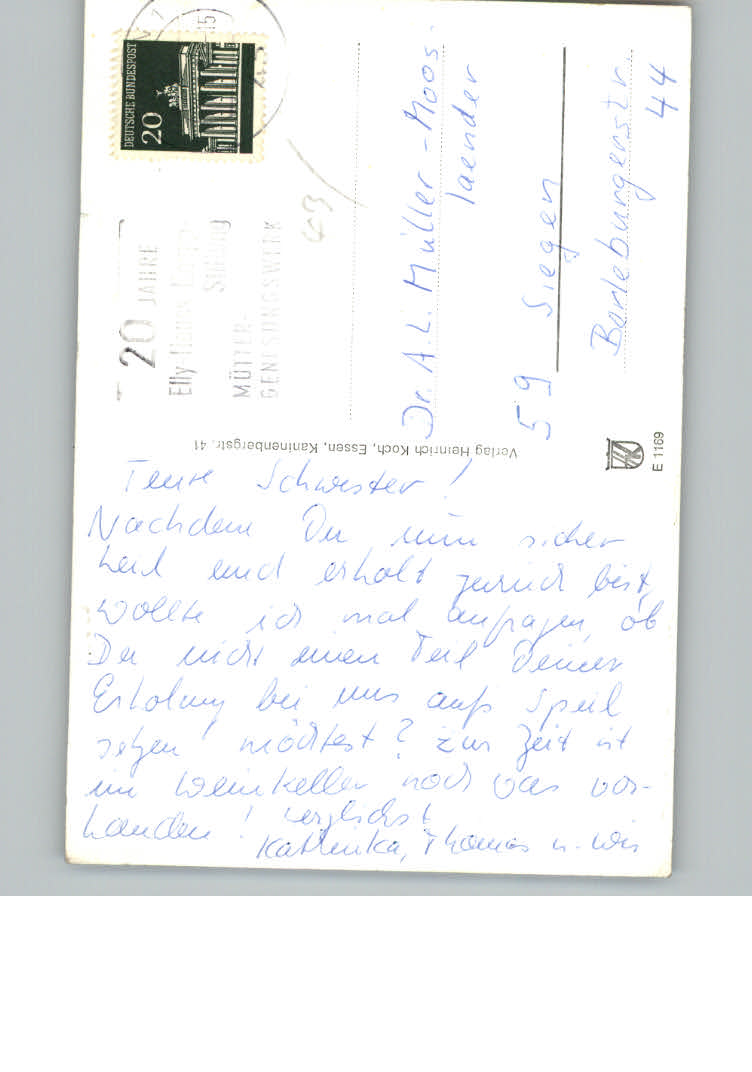 Teure Schwester!
Nachdem Du nun sicher
heil und erholt zurück bist,
wollte ich mal anfragen, ob
Du nicht einen Teil Deiner
Erholung bei uns aufs Spiel
setzen möchtest? Zur Zeit ist
im Weinkeller noch was vor-
handen! Herzlichst
Kathinka, Thomas u.
Dr. A. L. Müller-Moos-
laender
59 Siegen
Berleburgerstr.
44
DEUTSCHE BUNDESPOST
20
15
20 JAHRE
Elly-Heuss-Knapp-
Stiftung
MÜTTER-
GENESUNGSWERK
Verlag Heinrich Koch, Essen, Kaninenbergstr. 41
E 1169